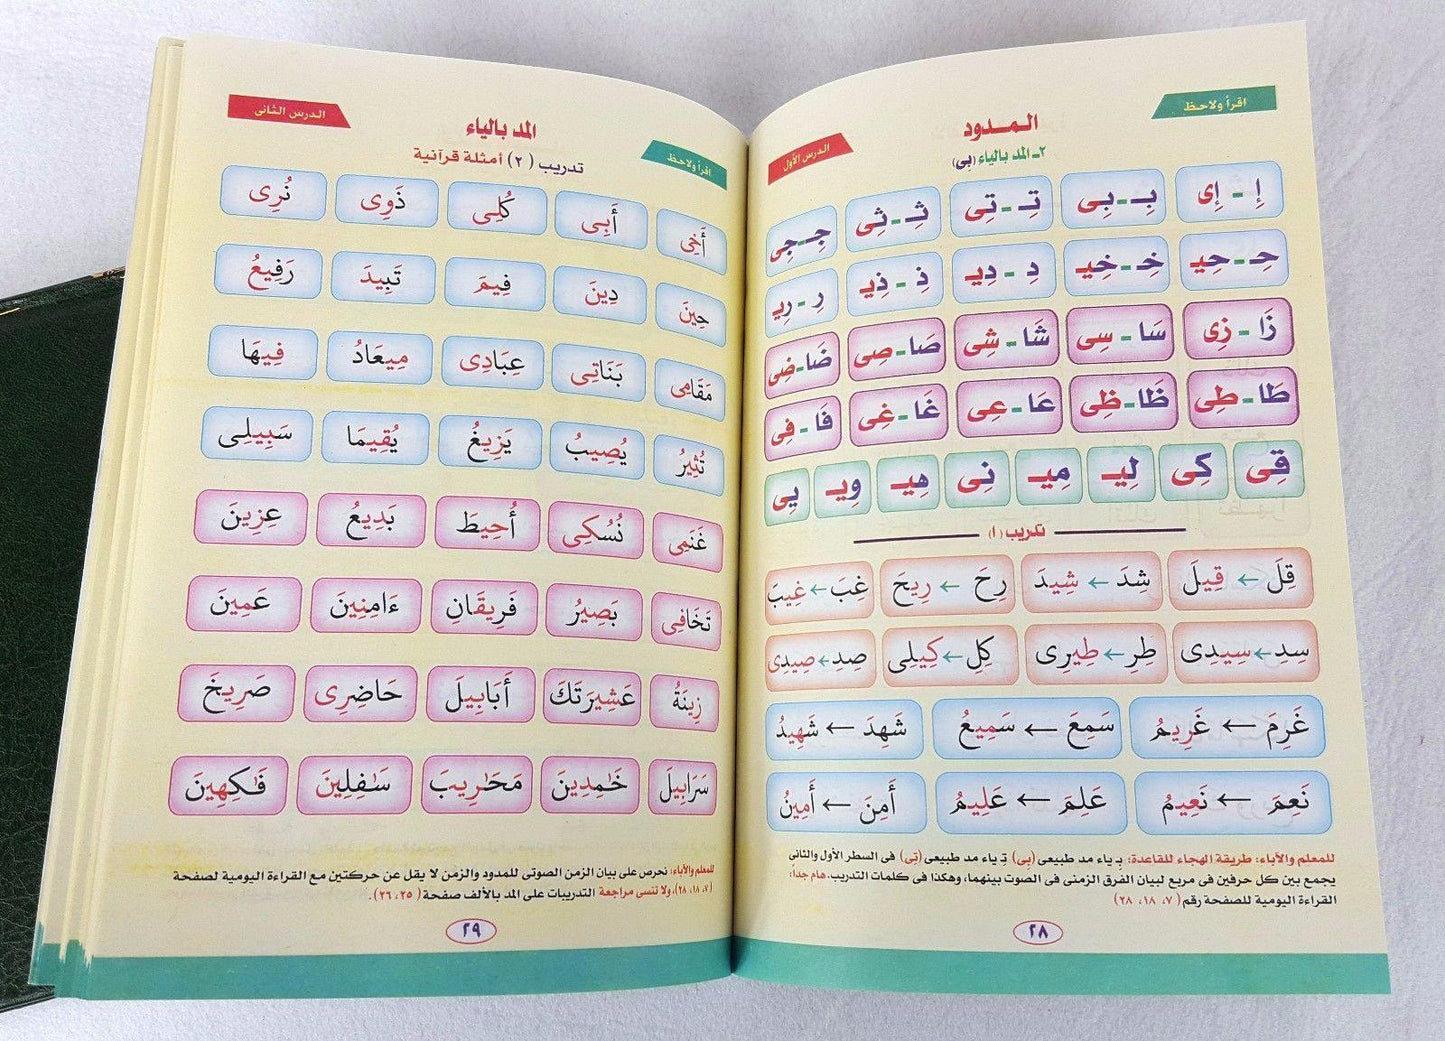 اقرأ ولاحظ
المـدود
الدرس الأول
٢ـ المد بالياء (بِى)
إِ - إِى بِـ - بِى تِـ - تِى ثِـ - ثِى جِـ - جِى
حِـ - حِيـ خِـ - خِيـ دِ - دِيـ ذِ - ذِيـ رِ - رِيـ
زَا - زِى سَا - سِى شَا - شِى صَا - صِى ضَا - ضِى
طَا - طِى ظَا - ظِى عَا - عِى غَا - غِى فَا - فِى
قِى كِى لِيـ مِيـ نِى هِيـ وِيـ يِى
تدريب (١)
قِلَ ← قِيلَ شِدَ ← شِيدَ رِحَ ← رِيحَ غِبَ ← غِيبَ
سِدِ ← سِيدِى طِرِ ← طِيرِى كِلِ ← كِيلِى صِدِ ← صِيدِى
غَرِمَ ← غَرِيمُ سَمِعَ ← سَمِيعُ شَهِدَ ← شَهِيدُ
نَعِمَ ← نَعِيمُ عَلِمَ ← عَلِيمُ أَمِنَ ← أَمِينُ
للمعلم والآباء: طريقة الهجاء للقاعدة: بـ ياء مد طبيعى (بِى) تـ ياء مد طبيعى (تِى) فى السطر الأول والثانى
يجمع بين كل حرفين فى مربع لبيان الفرق الزمنى فى الصوت بينهما، وهكذا فى كلمات التدريب. هام جداً:
القراءة اليومية للصفحة رقم (٧، ١٨، ٢٨)
٢٨
الدرس الثانى
المد بالياء
اقرأ ولاحظ
تدريب (٢) أمثلة قرآنية
أَخِى أَبِى كُلِى ذَوِى نُرِى
حِينَ دِينَ فِيمَ تَبِيدَ رَفِيعُ
مَقَامِى بَنَاتِى عِبَادِى مِيعَادُ فِيهَا
تُثِيرُ يُصِيبُ يَزِيغُ يُقِيمَا سَبِيلِى
غَنَمِى نُسُكِى أُحِيطَ بَدِيعُ عِزِينَ
تَخَافِى بَصِيرُ فَرِيقَانِ ءَامِنِينَ عَمِينَ
زِينَةُ عَشِيرَتَكَ أَبَابِيلَ حَاضِرِى صَرِيخَ
سَرَابِيلَ خَٰمِدِينَ مَحَٰرِيبَ سَٰفِلِينَ فَٰكِهِينَ
للمعلم والآباء: نحرص على بيان الزمن الصوتى للمدود والزمن لا يقل عن حركتين مع القراءة اليومية لصفحة
(٧، ١٨، ٢٨)، ولا تنسى مراجعة التدريبات على المد بالألف صفحة (٢٥، ٢٦).
٢٩